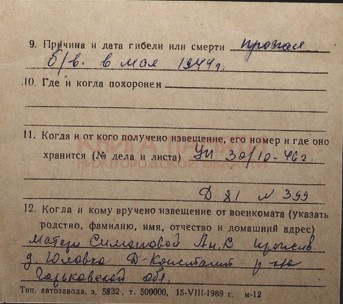 9. Причина и дата гибели или смерти пропал
б/в. в мая 1944г.
10. Где и когда похоронен
11. Когда и от кого получено извещение, его номер и где оно
хранится (№ дела и листа) Уп 30/10-46г
Д 81 л 399
12. Когда и кому вручено извещение от военкомата (указать
родство, фамилию, имя, отчество и домашний адрес)
матери Симаковой Ан.С прожив
д Юловка Д-Констант р-на
Горьковской обл.
Тип. автозавода, з. 5832, т. 500000, 15-VIII-1989 г. м-12